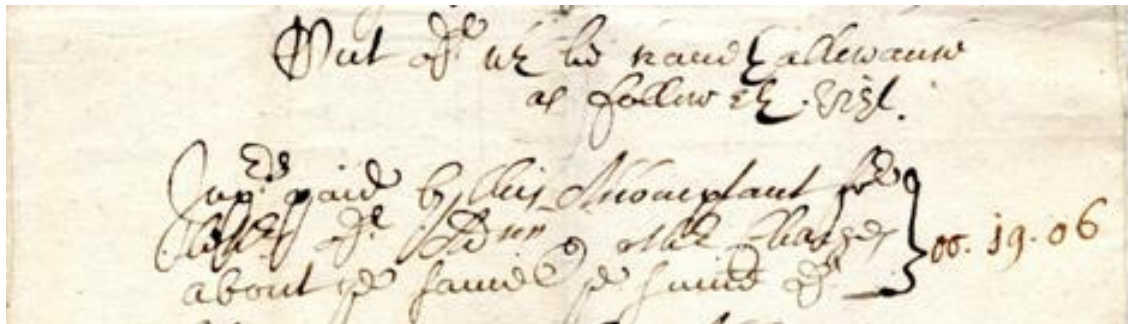 Out of wch he craueth allowance
as followeth. vizt.
Imprs paid by this Accomptant for
Letters of Admn & other Charges
about ye same ye summe of 00. 19. 06